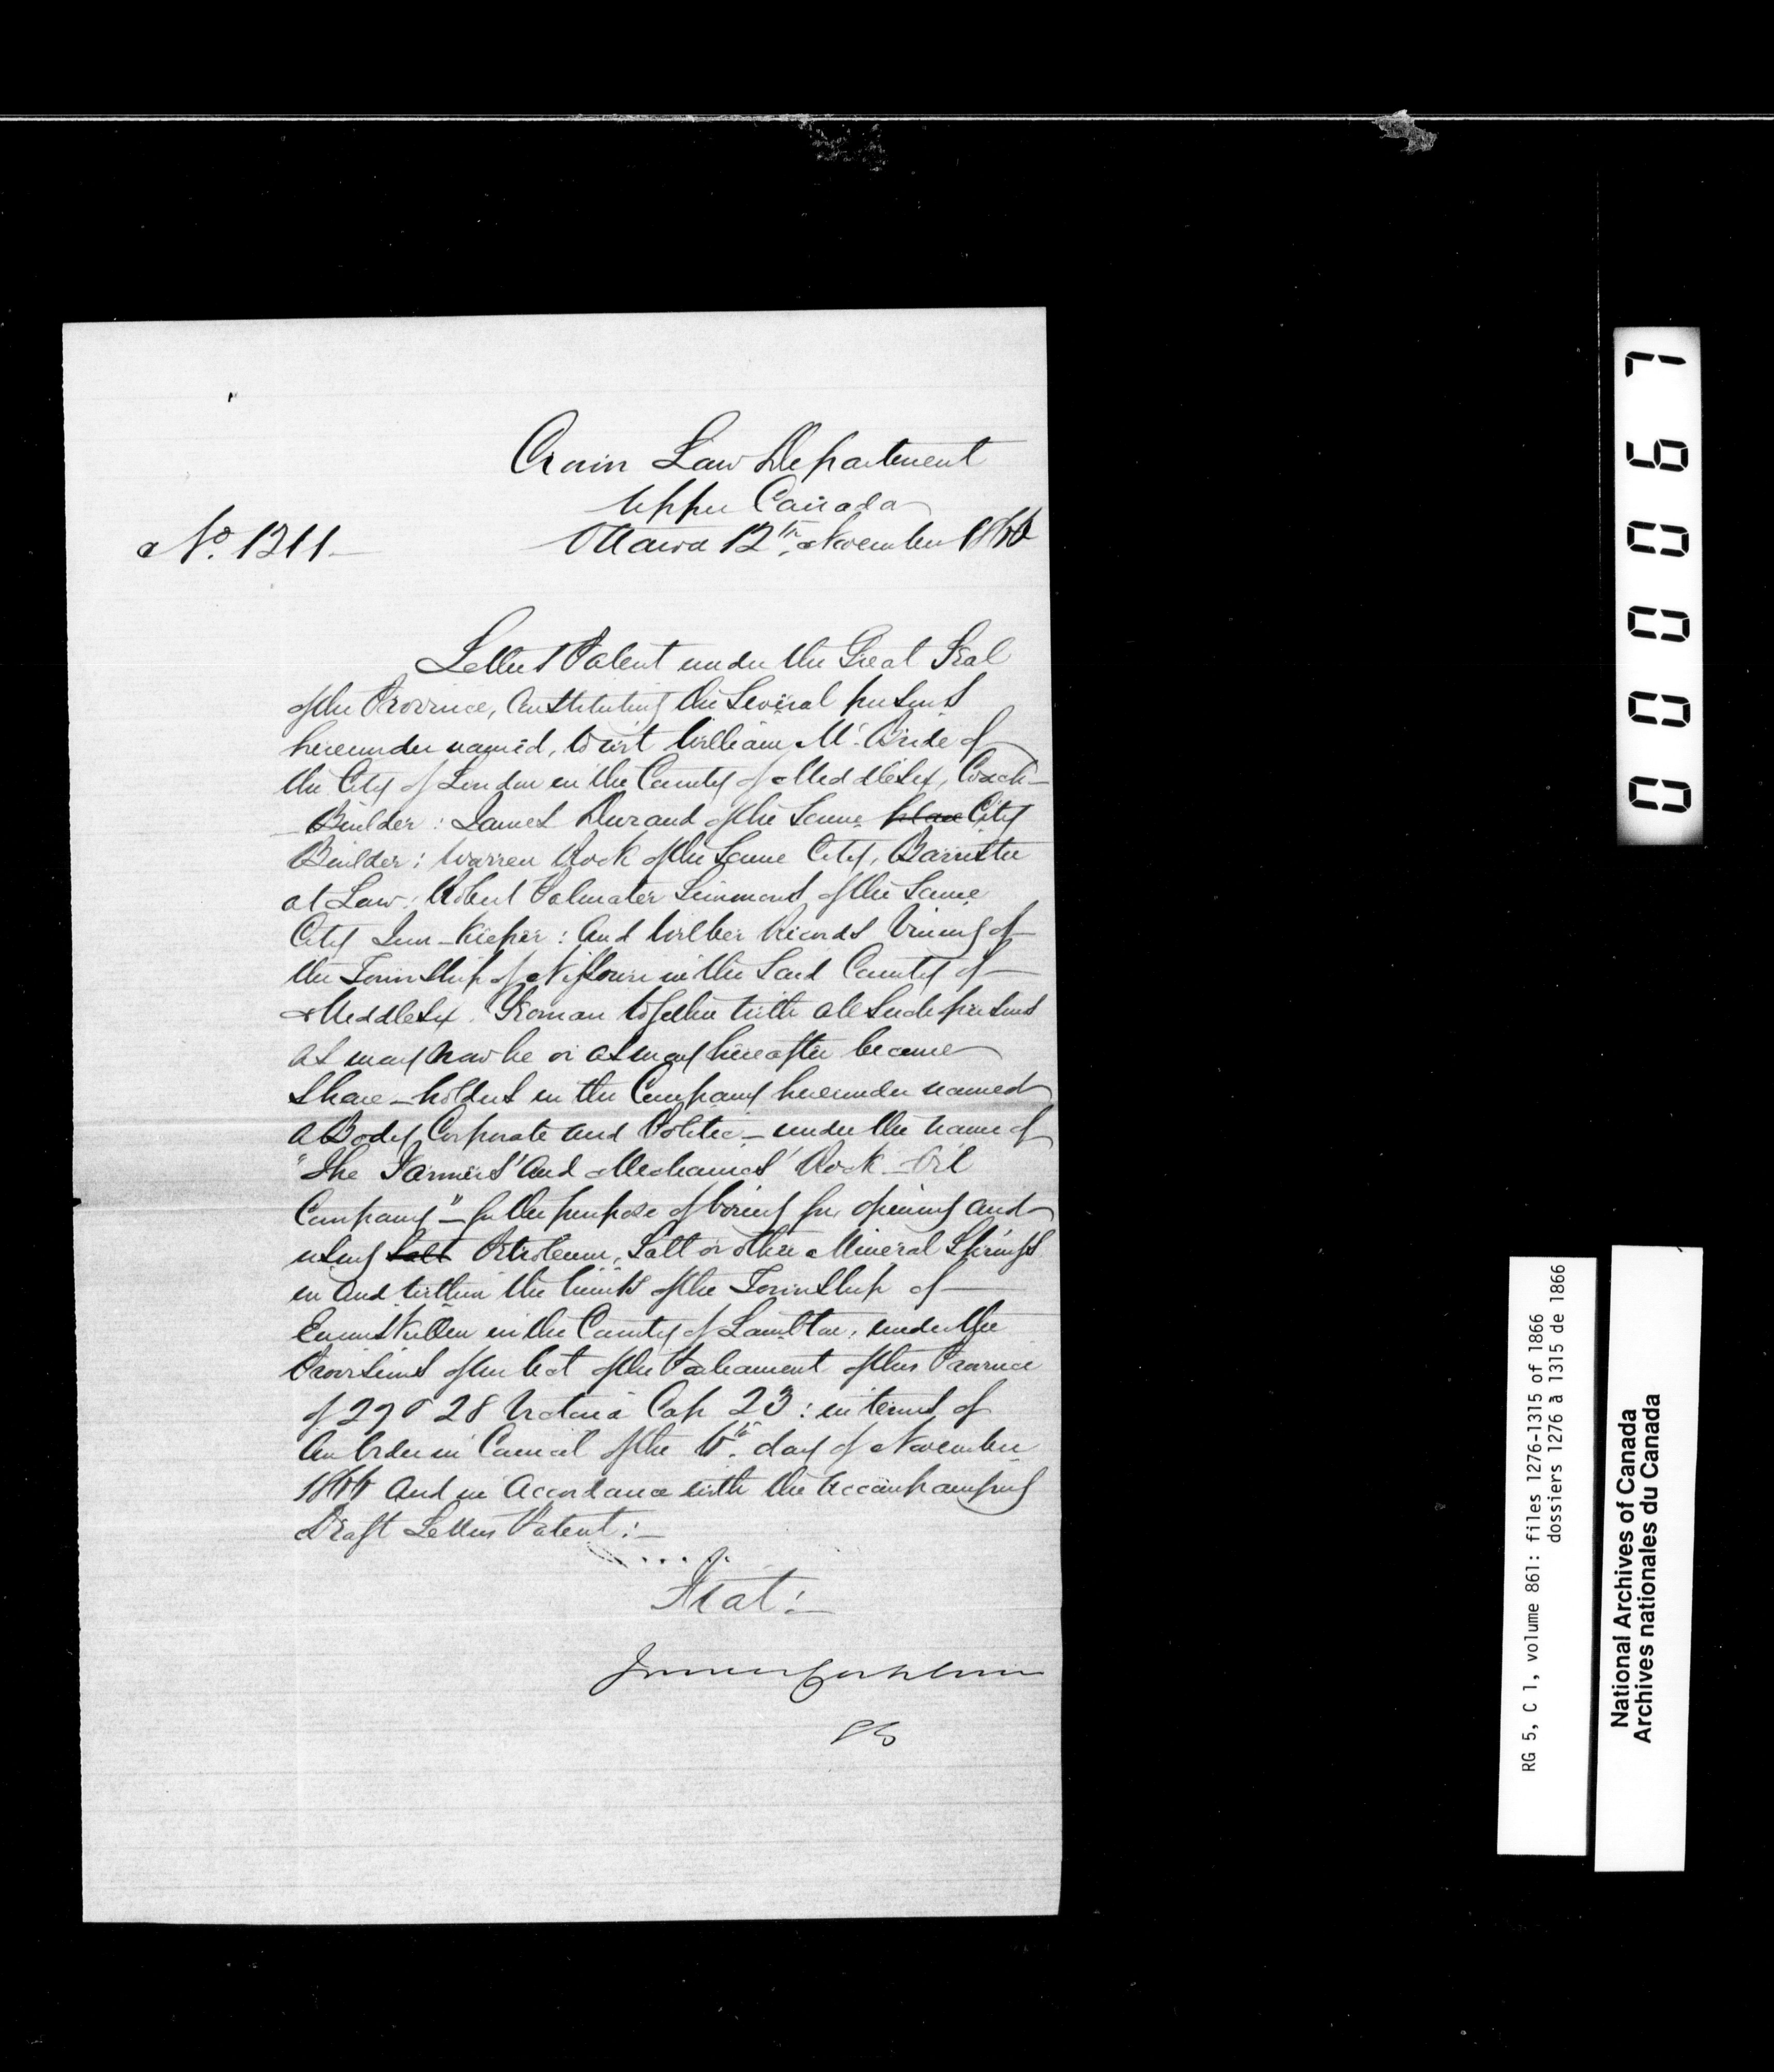 Crown Law Department
Upper Canada
No. 1311
Ottawa 12th November 1866
Letters Patent under the Great Seal
of the Province, Constituting the Several persons
hereunder named, to wit William Mc.Bride of
the City of London in the County of Middlesex, Coach-
Builder: James Durand of the Same place City
Builder: Warren Rock of the Same City, Barrister
at Law: Robert Palmater Simmons of the Same
City Inn-Keeper: And Wilber Vining of
the Township of Nissouri in the Said County of
Middlesex. Yeoman together with all Such persons
as may now be or as may hereafter become
Share-holders in the Company hereunder named
a Body Corporate and Politic - under the name of
"The Farmers' and Mechanics' Rock-Oil
Company" - for the purpose of boring for, opening and
using Salt Petroleum, Salt or other Mineral Springs
in and within the limits of the Township of
Enniskillen in the County of Lambton, under the
Provisions of an Act of the Parliament of this Province
of 27 & 28 Victoria Cap 23: in terms of
An Order in Council of the 6th. day of November
1866 And in Accordance with the accompanying
Draft Letters Patent:-
Fiat:-
0 0 0 0 6 7
RG 5, C 1, volume 861: files 1276-1315 of 1866
dossiers 1276 à 1315 de 1866
National Archives of Canada
Archives nationales du Canada